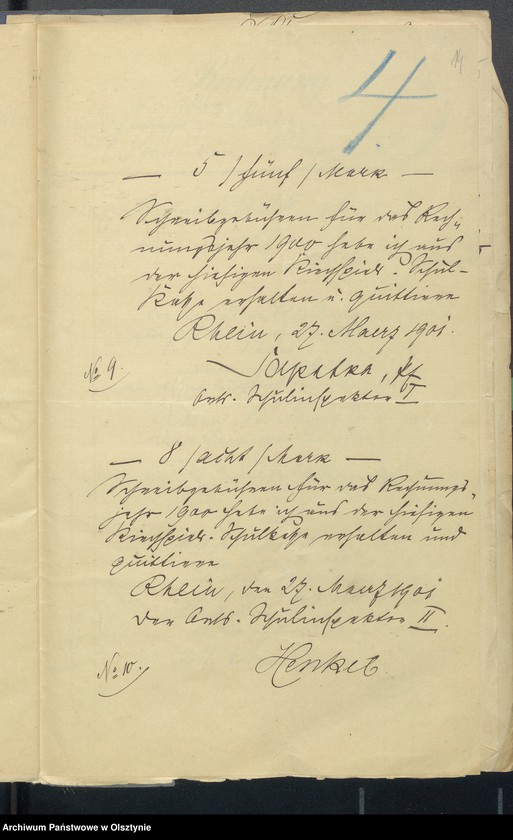 14
4
— 5 /fünf/ Mark —
Schreibgebühren für das Rech-
nungsjahr 1900 habe ich aus
der hiesigen Kirchspiels-Schul-
Kasse erhalten u. quittiere
Rhein, 27. Maerz 1901.
№ 9.
Pf
Orts-Schulinspektor I
— 8 /acht/ Mark —
Schreibgebühren für das Rechnungs-
jahr 1900 habe ich aus der hiesigen
Kirchspiels-Schulkasse erhalten und
quittiere
Rhein, den 27. Maerz 1901
Der Orts-Schulinspektor II.
№ 10.
Henkel
Archiwum Państwowe w Olsztynie